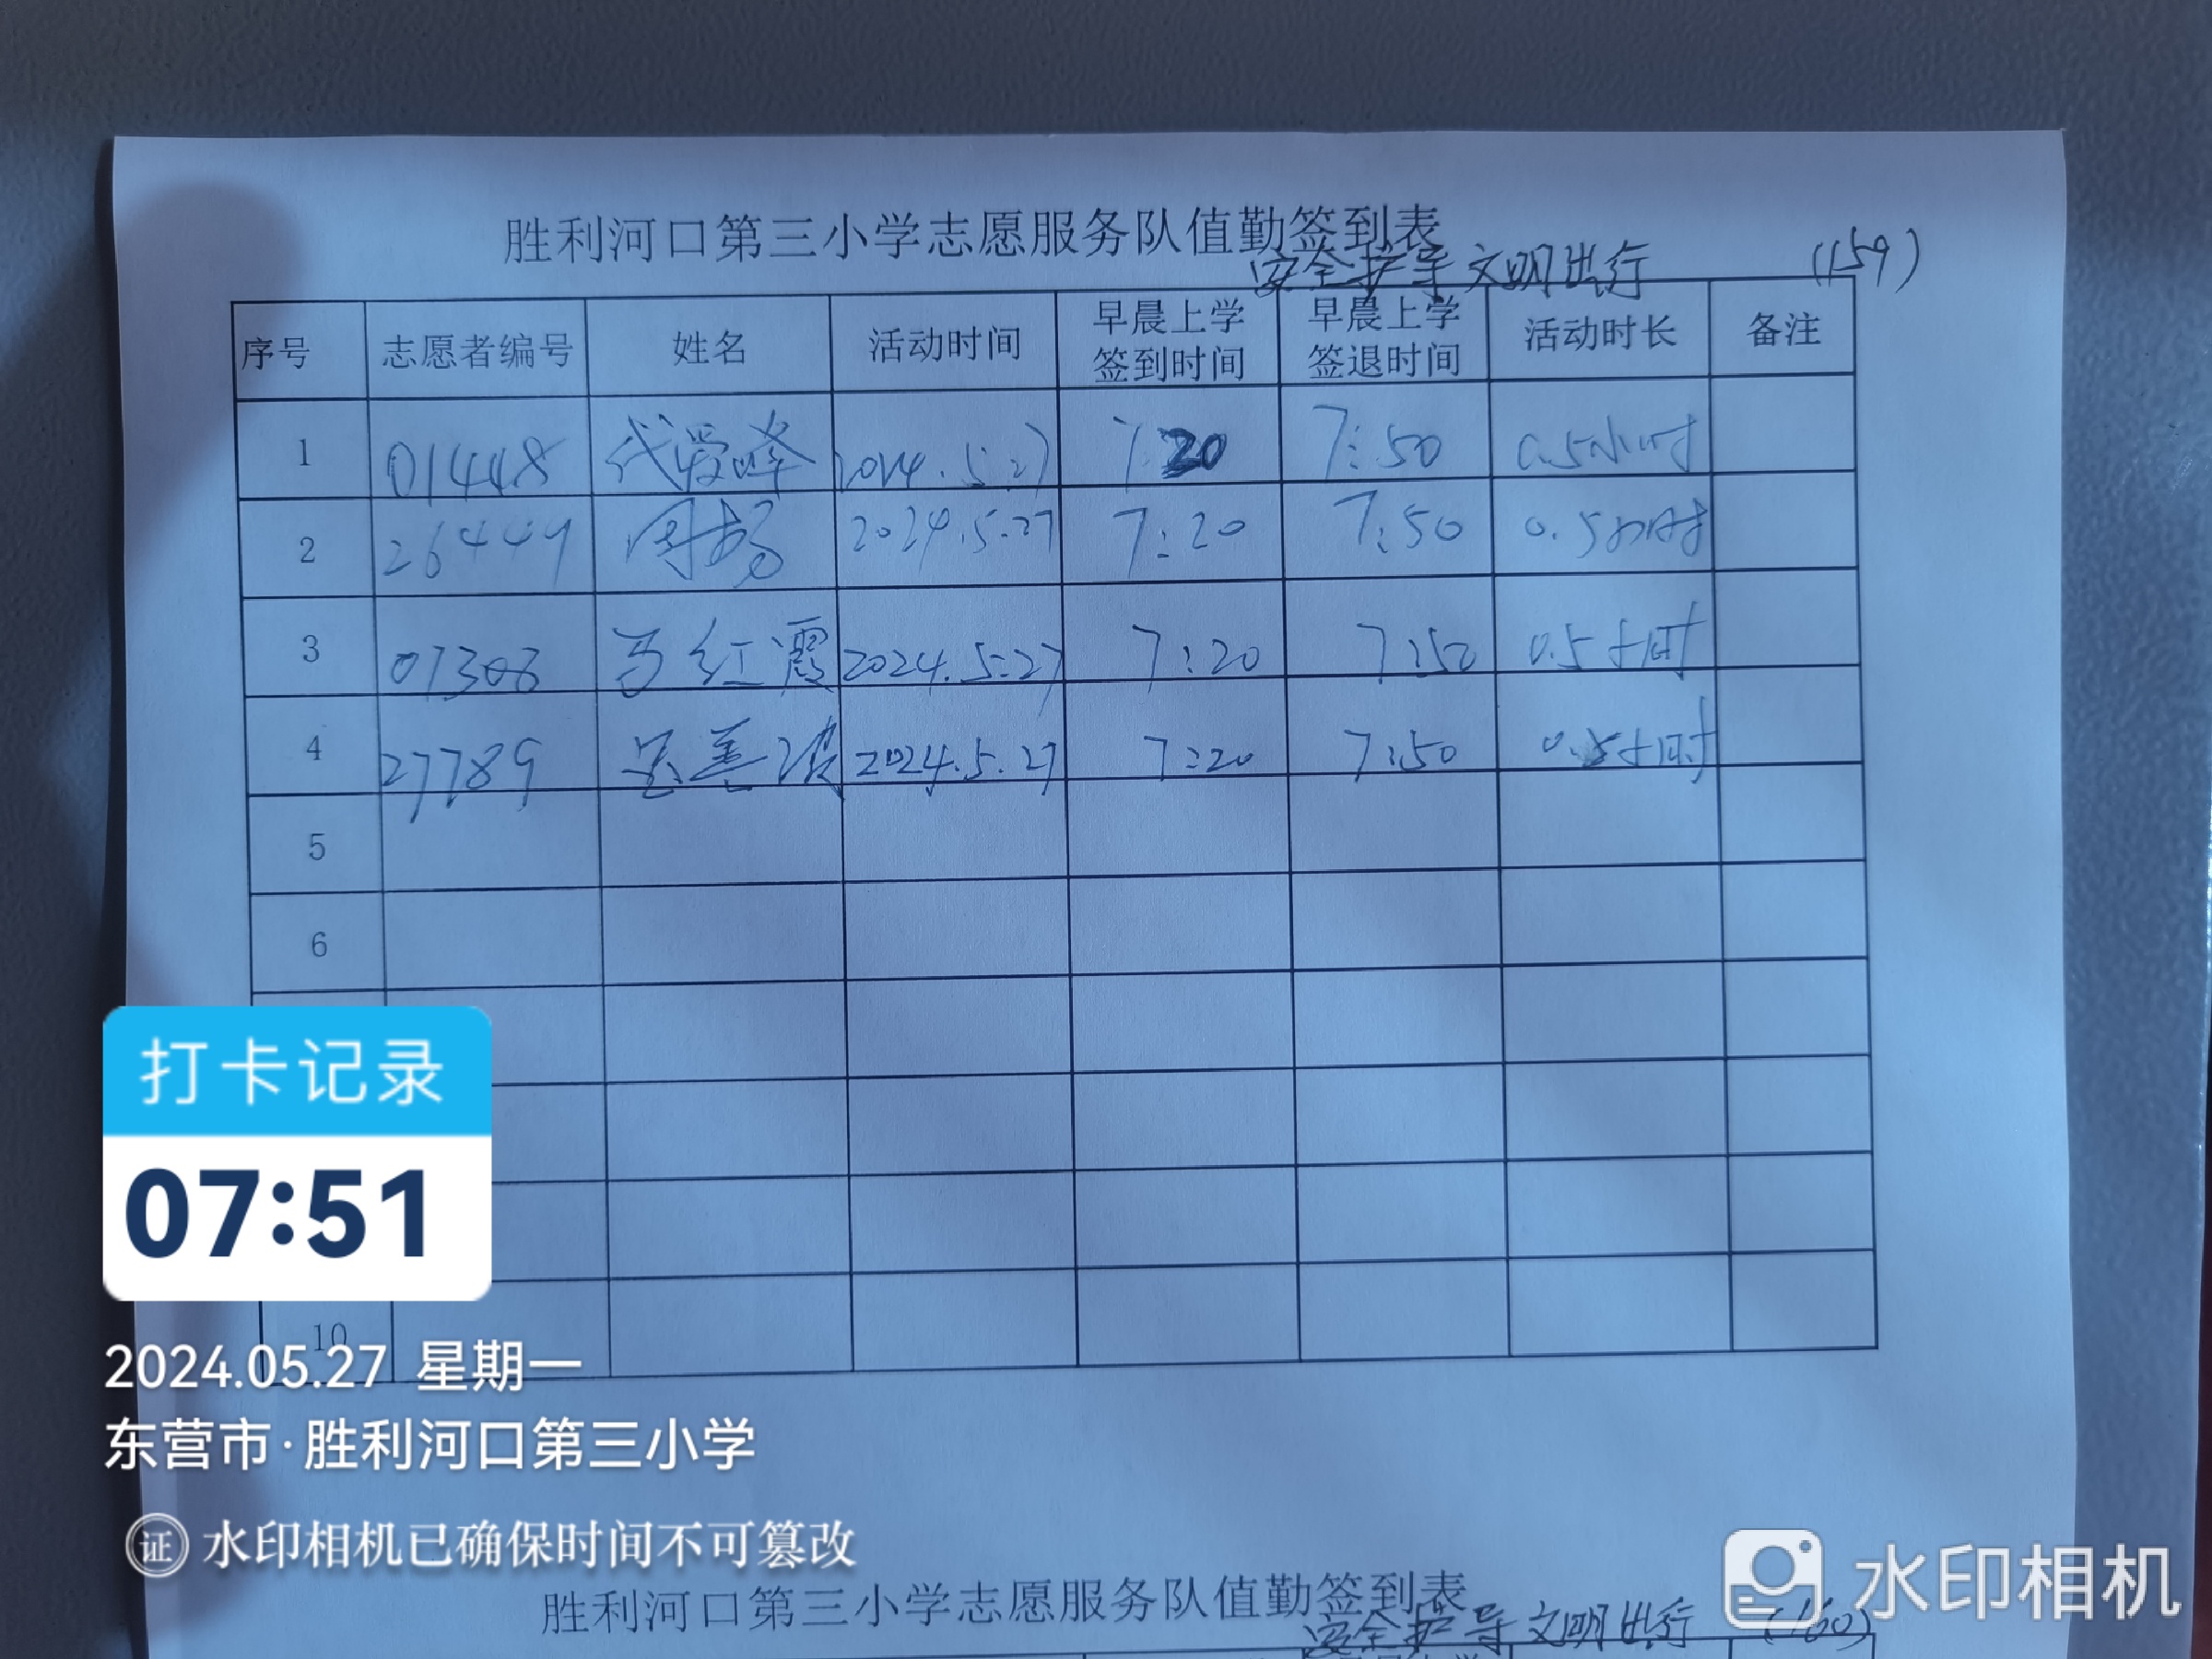 胜利河口第三小学志愿服务队值勤签到表
安全护导 文明出行 (159)
序号 志愿者编号 姓名 活动时间 早晨上学签到时间 早晨上学签退时间 活动时长 备注
1 01448 代爱峰 2024.5.27 7:20 7:50 0.5小时
2 26449 周 2024.5.27 7:20 7:50 0.5小时
3 01303 马红霞 2024.5.27 7:20 7:50 0.5小时
4 27789 善波 2024.5.27 7:20 7:50 0.5小时
5
6
10
打卡记录
07:51
2024.05.27 星期一
东营市·胜利河口第三小学
证 水印相机已确保时间不可篡改
水印相机
胜利河口第三小学志愿服务队值勤签到表
安全护导 文明出行 (160)